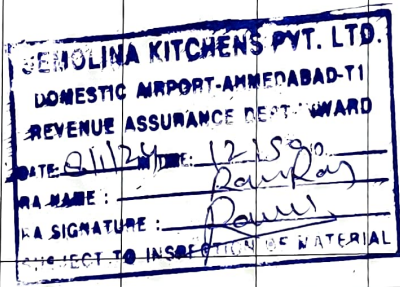 SEMOLINA KITCHENS PVT. LTD.
DOMESTIC AIRPORT-AHMEDABAD-T1
REVENUE ASSURANCE DEPT INWARD
DATE: 8/1/24 TIME: 12:50
RA NAME :
RA SIGNATURE :
SUBJECT TO INSPECTION OF MATERIAL